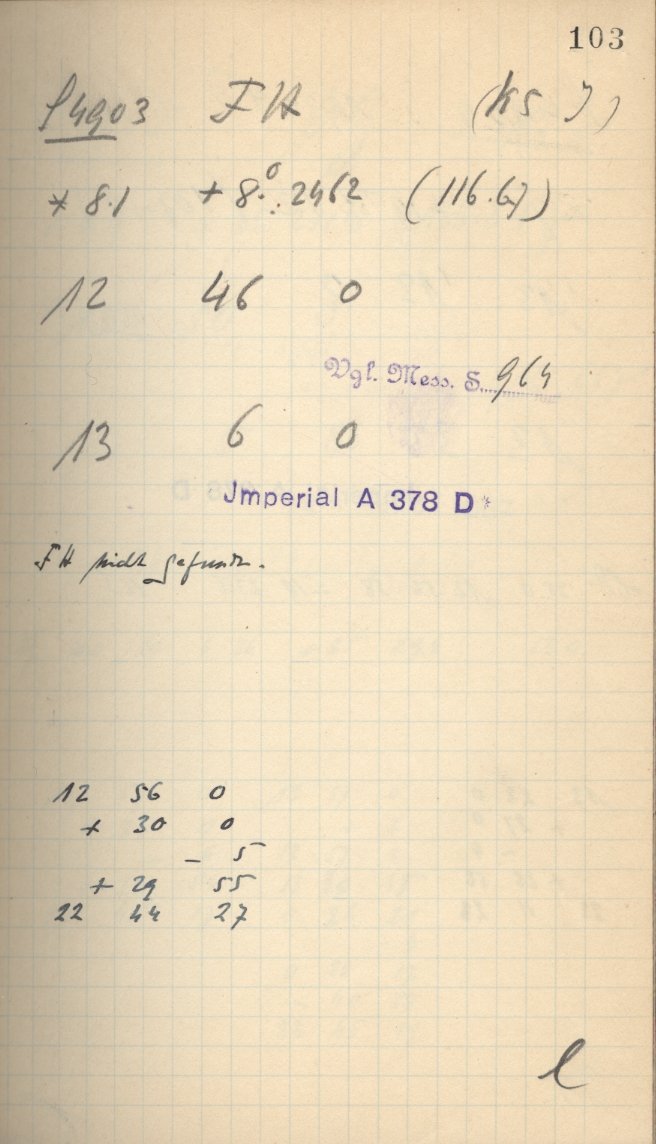 103
P4903 FH (K5 J)
* 8.1 + 8.° 2462 (116.67)
12 46 0
Vgl. Mess. S. 964
13 6 0
Jmperial A 378 D *
FH nicht gefunden.
12 56 0
+ 30 0
- 5
+ 29 55
22 44 27